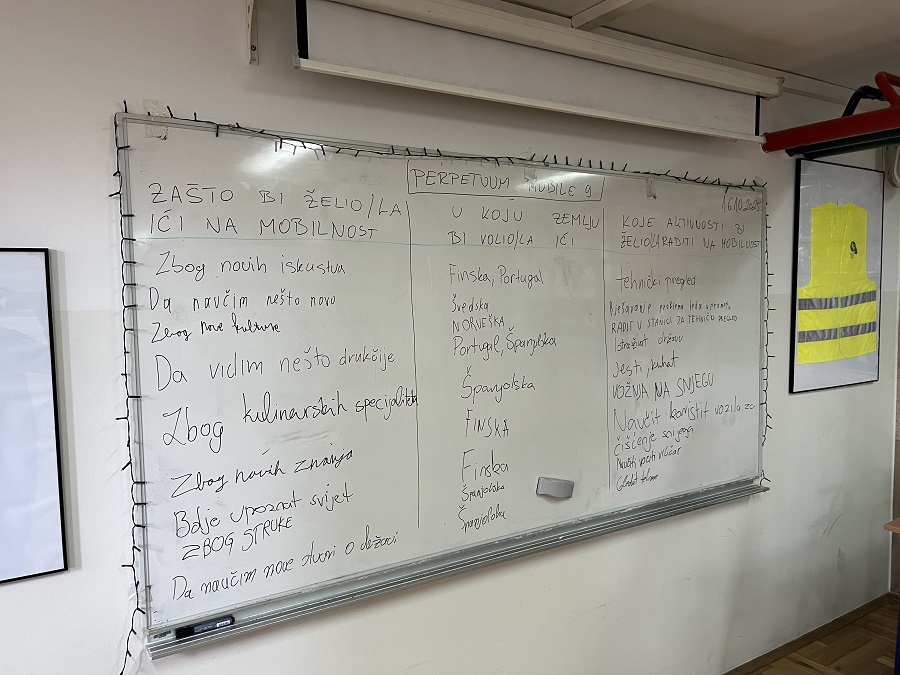 PERPETUUM MOBILE 9
16.10.2023
ZAŠTO BI ŽELIO/LA
IĆI NA MOBILNOST
Zbog novih iskustva
Da naučim nešto novo
Zbog nove kulture
Da vidim nešto drukčije
Zbog kulinarskih specijaliteta
Zbog novih znanja
Bolje upoznat svijet
ZBOG STRUKE
Da naučim nove stvari o državi
U KOJU ZEMLJU
BI VOLIO/LA IĆI
Finska, Portugal
Švedska
NORVEŠKA
Portugal, Španjolska
Španjolska
FINSKA
Finska
Španjolska
Španjolska
KOJE AKTIVNOSTI BI
ŽELIO/LA RADITI NA MOBILNOSTI
tehnički pregled
Rješavanje problema
RADIT U STANICI ZA TEHNIČKI PREGLED
Istraživat državu
Jesti, kuhat
VOŽNJA NA SNIJEGU
Naučit koristit vozila za
čišćenje snijega
Naučiti voziti viličar